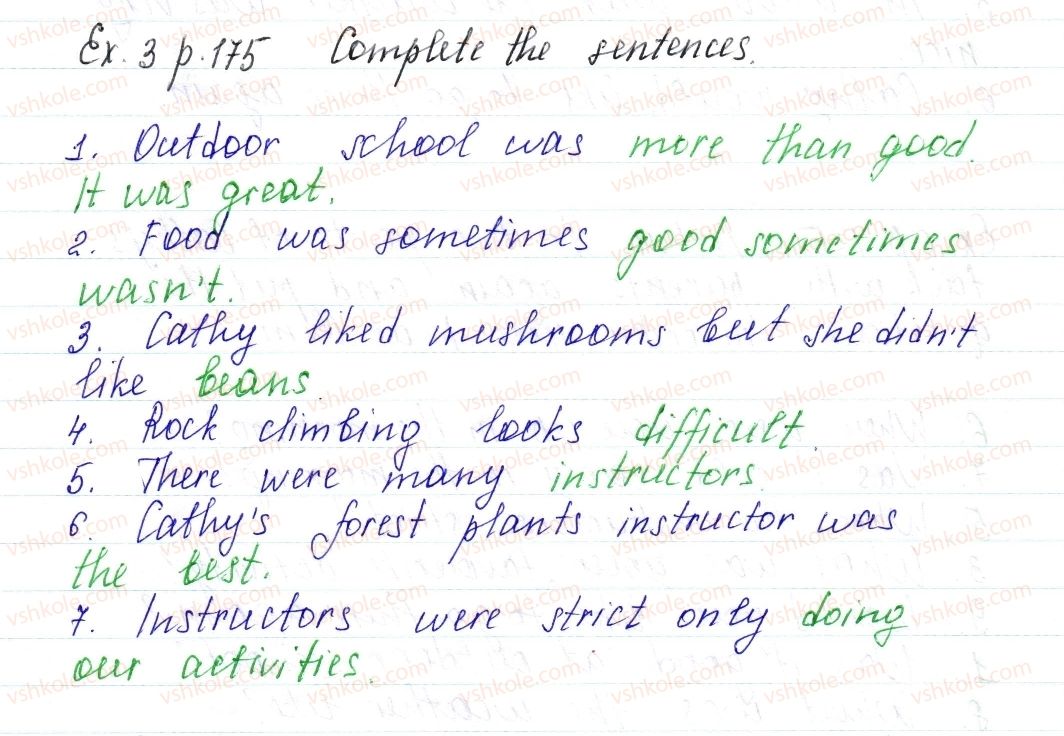 Ex. 3 p. 175 Complete the sentences.
1. Outdoor school was more than good.
It was great.
2. Food was sometimes good sometimes
wasn't.
3. Cathy liked mushrooms but she didn't
like beans.
4. Rock climbing looks difficult.
5. There were many instructors.
6. Cathy's forest plants instructor was
the best.
7. Instructors were strict only doing
our activities.